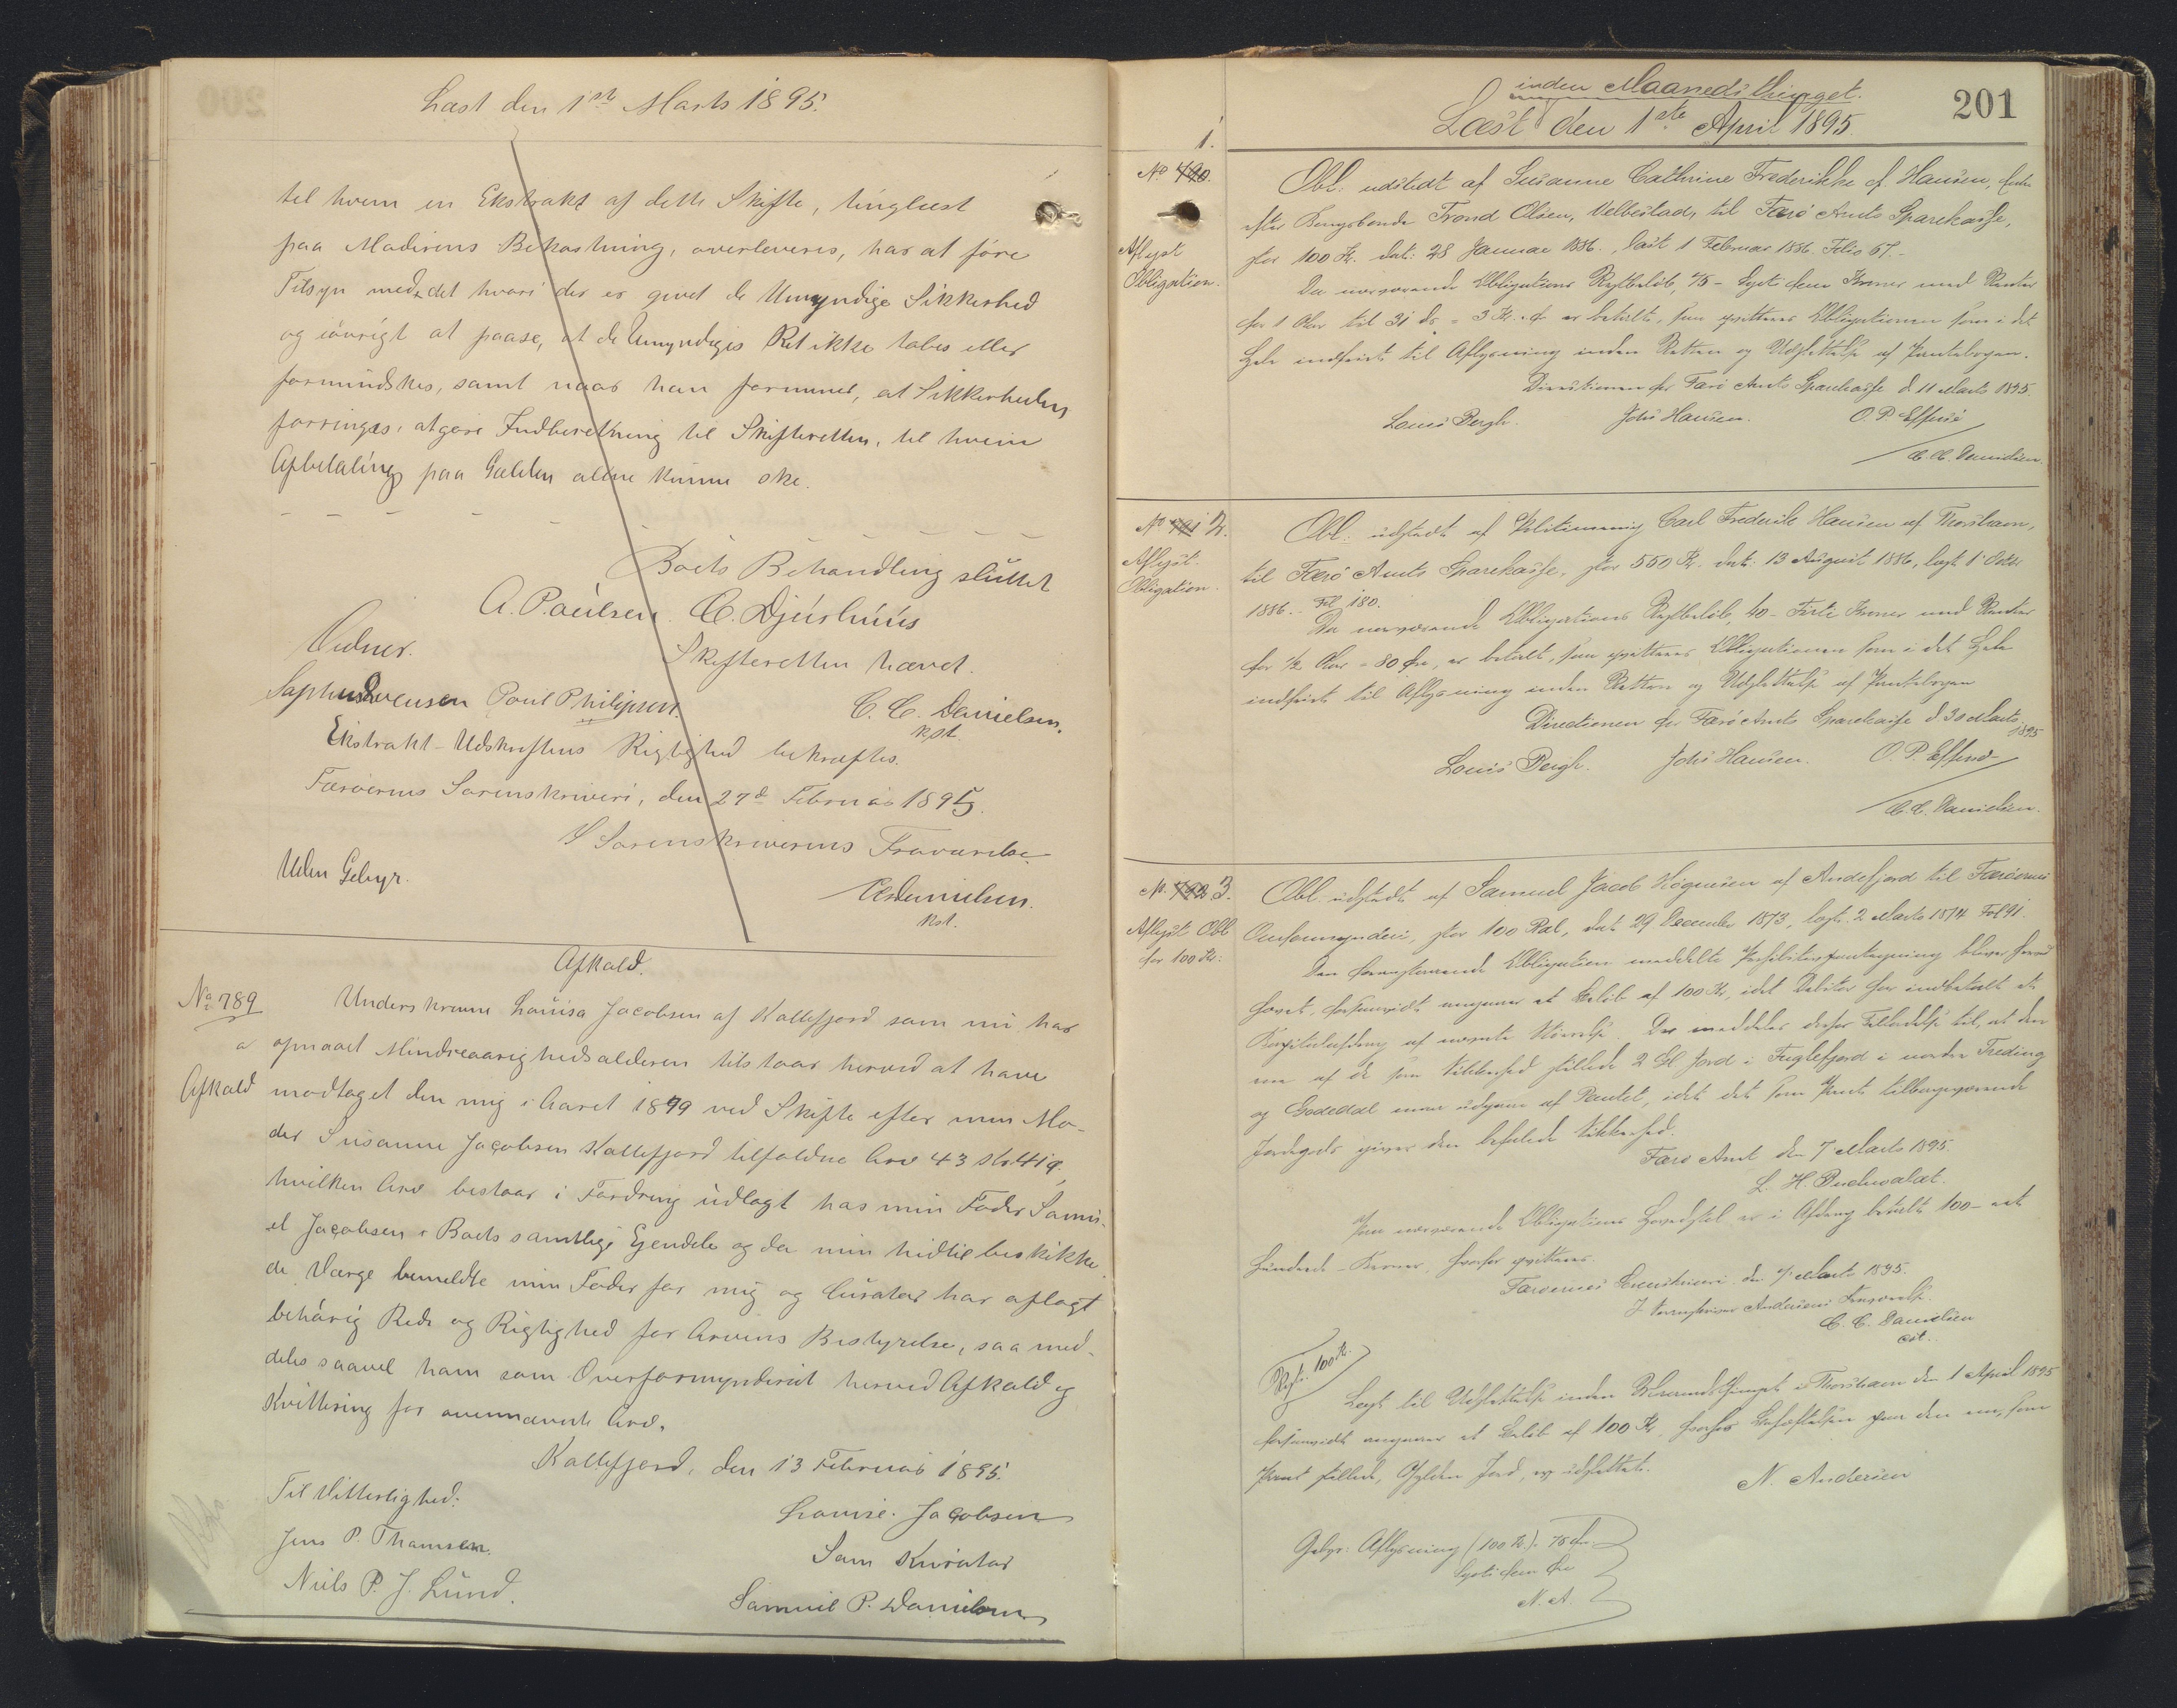 Læst den 1ste Marts 1895.
til hvem en Ekstrakt af dette Skifte, tinglæst
paa Moderens Bekostning, overleveres, har at føre
Tilsyn med det hvori der er givet de Umyndige Sikkerhed
og iøvrigt at paase, at de Umyndiges Ret ikke tabes eller
formindskes, samt naar han formener, at Sikkerheden
forringes, at gøre Indberetning til Skifteretten, til hvem
Afbetaling paa Gælden alene kunne ske.
Boets Behandling sluttet
A. Paulsen. C. Djurhuus
Vidner.
Skifteretten hævet.
Svensen Poul Philipsen.
C. C. Danielsen.
kst.
Ekstrakt-Udskriftens Rigtighed bekræftes.
Færøernes Sorenskriveri, den 27d Februar 1895.
I Sorenskriverens Fraværelse
Uden Gebyr.
CCDanielsen.
kst.
Afkald.
No 789
Underskrevne Louisa Jacobsen af Kollefjord som nu har
a opnaaet Mindreaarighedsalderen tilstaar herved at have
Afkald
modtaget den mig i Aaret 1879 ved Skifte efter min Mo-
der Susanne Jacobsen Kollefjord tilfaldne Arv 43 Kr 41 ø,
hvilken Arv bestaar i Fordring udlagt hos min Fader Samu-
el Jacobsen i Boets samtlige Ejendele og da min hidtil beskikke
de Værge bemeldte min Fader for mig og Curator har aflagt
behørig Rede og Rigtighed for Arvens Bestyrelse, saa med-
deles saavel ham som Overformynderiet herved Afkald og
Kvittering for ovennævnte Arv.
Kollefjord, den 13 Februar 1895.
Til Vitterlighed:
Louise Jacobsen
Jens P. Thomsen.
Som Kurator
Niels P. J. Lund.
Samuel P. Danielsen
201
inden Maanedsthinget.
Læst den 1ste April 1895.
1.
No 790.
Aflyst
Obligation.
Obl. udstedt af Susanne Cathrine Frederikke f. Hansen, Enke
efter Kongsbonde Trond Olsen, Velbestad, til Færø Amts Sparekasse,
stor 100 Kr. dat: 28 Januar 1886., læst 1 Februar 1886. Folio 67.
Da nærværende Obligations Restbeløb, 75 - Syti fem Kroner med Renter
for 1 Aar til 31 ds = 3 Kr. er betalte, saa qvitteres Obligationen som i det
Hele indfriet til Aflysning inden Retten og Udslettelse af Pantebogen.
Directionen for Færø Amts Sparekasse d. 11 Marts 1895.
Louis Bergh. Johs Hansen. O. P. Effersø
/ C. C. Danielsen.
No 791 2.
Aflyst.
Obligation.
Obl. udstedt af Carl Frederik Hansen af Thorshavn,
til Færø Amts Sparekasse, stor 550 Kr. dat: 13 August 1886, læst 1 Octbr
1886. Fol 180.
Da nærværende Obligations Restbeløb, 40 - Firti Kroner med Renter
for 1/2 Aar = 80 Øre, er betalt, saa qvitteres Obligationen som i det Hele
indfriet til Aflysning inden Retten og Udslettelse af Pantebogen
Directionen for Færø Amts Sparekasse d. 30 Marts 1895
Louis Bergh. Johs Hansen. O. P. Effersø
/ C. C. Danielsen.
No. 792 3.
Aflyst Obl
for 100 Kr.
Obl. udstedt af Samuel Jacob Høgnesen af Andefjord til Færøernes
Overformynderi, stor 100 Rdl, dat 29 December 1873, læst 2 Marts 1874 Fol 91.
Den foranstaaende Obligation meddelte bliver herved
hævet, forsaavidt angaaer et Beløb af 100 Kr, idet Debitor har indbetalt et
Kapitalafdrag af nævnte Størrelse. Der meddeles derfor Tilladelse til, at den
ene af de som Sikkerhed stillede 2 Gl. Jord i Fuglefjord
og Godedal maa udgaae af Pantet, idet det som Pant tilbageværende
Jordegods giver den befalede Sikkerhed.
Færø Amt den 7 Marts 1895.
L. H. Buchwaldt.
Paa nærværende Obligations Hovedstol er i Afdrag betalt 100 - eet
Hundrede - Kroner, hvorfor qvitteres.
Færøernes Sorenskriveri den 7 Marts 1895.
I Sorenskriver Andersens Fraværelse.
C. C. Danielsen
cst.
100 Kr.
Læst til Udslettelse inden Maanedsthinget i Thorshavn den 1 April 1895
forsaavidt angaaer et Beløb af 100 Kr, hvorhos Behæftelsen paa den ene, som
Pant stillede, Gylden Jord, er udslettet.
N. Andersen
Gebyr: Aflysning (100 Kr.) 75 Øre
Syti fem Øre
N. A.